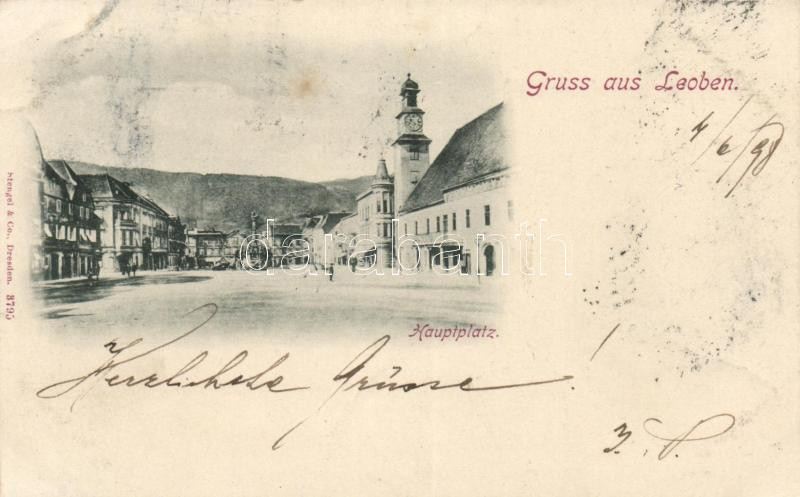 Gruss aus Leoben.
4/6/98
Stengel & Co., Dresden. 3795
darabanth
Hauptplatz.
Herzlichste Grüsse!